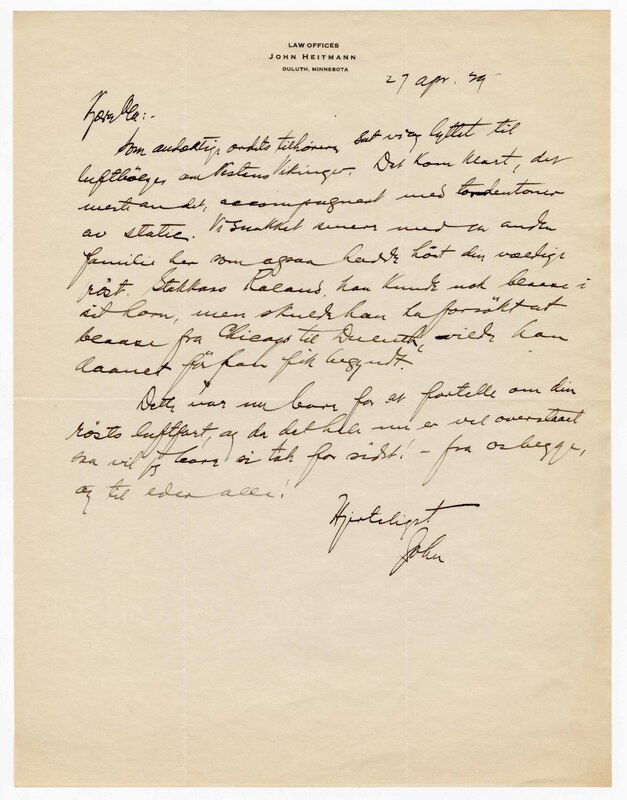 LAW OFFICES
JOHN HEITMANN
DULUTH, MINNESOTA
27 apr. 29
Kjære Ola:-
Som andektige ordets tilhørere sat vi og lyttet til
luftbölger om Vestens Vikinger. Det kom klart, det
meste av det, accompagnert med tordentoner
av static. Vi snakket senere med en anden
familie her som ogsaa hadde hört din vældige
röst. Stakkars Roland, han kunde nok blaase i
sit horn, men skulde han ha forsökt at
blaase fra Chicago til Duluth, vilde han
daanet för han fik begyndt.
Dette var nu bare for at fortelle om din
rösts luftfart, og da det hele nu er vel overstaaet
saa vil jeg bare si tak for sidst! - fra os begge,
og til eder alle!
Hjerteligst
John